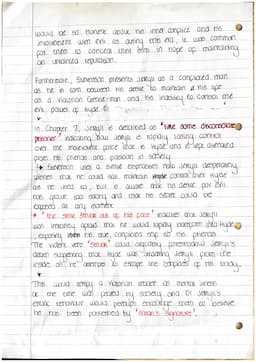 would be so honest about his inner conflict and his
involvement with evil as during this era, it was common
for them to conceal their sins in hope of maintaining
an untainted reputation.
Furthermore, Stevenson presents Jekyll as a complicated man
as he is torn between his desire to maintain his life
as a Victorian Gentleman and his inability to control the
evil power of Hyde.
In Chapter 7, Jekyll is described as "like some disconsolate
prisoner" indicating how Jekyll is rapidly losing control
over the malevolent force that is Hyde and is kept alienated
from his friends and position in society.
Stevenson uses a simile emphasises how Jekyll's desperately
wishes that he could still maintain control over Hyde
as he used to, but is aware that his desire for evil
has grown too strong and that his sinner could be
exposed at any moment.
"the smile struck out of his face" indicates that Jekyll
was instantly afraid that he would rapidly transform into Hyde
exposing his true, conscious self to his friends.
The violent verb "struck" could arguably foreshadow Jekyll's
death suggesting that Hyde was attacking Jekyll from the
inside as he attempts to escape the confines of his body.
This would terrify a Victorian reader as mental illness
at the time was feared by society and so Jekyll's
erratic behaviour would perhaps encourage them to believe
he has been possessed by "Satan's signature".